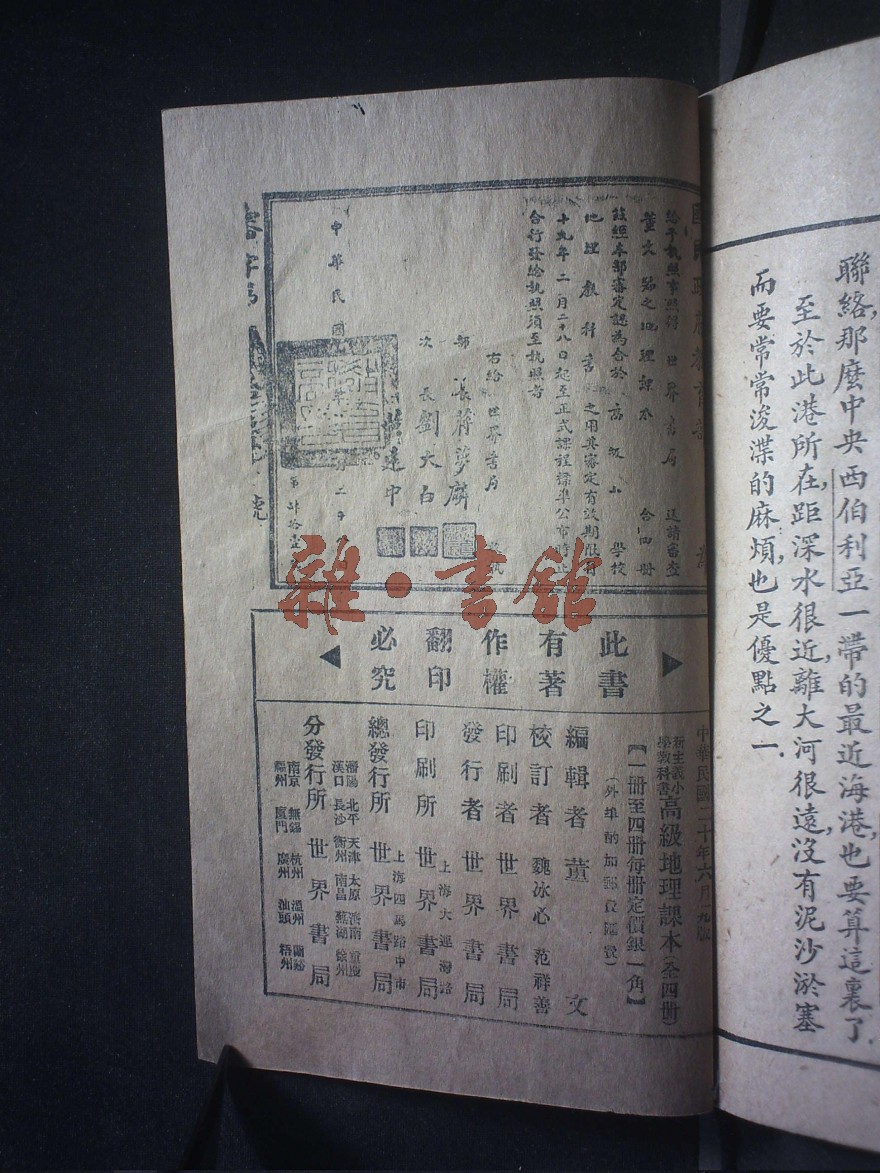 聯絡,那麼中央西伯利亞一帶的最近海港,也要算這裏了.
至於此港所在,距深水很近,離大河很遠,沒有泥沙淤塞
而要常常浚渫的麻煩,也是優點之一.
給予執照事照得 世界書局 送請審查
董文編之地理課本 合四冊
茲經本部審定認為合於 高級小學校
地理教科書 之用其審定有效期限自
十九年二月二十八日起至正式課程標準公布時止
合行發給執照須至執照者
右給 世界書局
部長蔣夢麟
次長劉大白
中華民國
號
此書
有著
作權
翻印
必究
中華民國二十年六月 版
新主義小學教科書高級地理課本(全四冊)
【一冊至四冊每冊定價銀一角】
(外埠酌加郵費匯費)
編輯者 董文
校訂者 魏冰心 范祥善
印刷者 世界書局
發行者 世界書局
印刷所 上海大連灣路 世界書局
總發行所 上海四馬路中市 世界書局
瀋陽 北平 天津 太原 濟南 重慶
漢口 長沙 衡州 南昌 蕪湖 徐州
分發行所 世界書局
南京 無錫 杭州 溫州 蘭谿
福州 廈門 廣州 汕頭 梧州
雜·書館